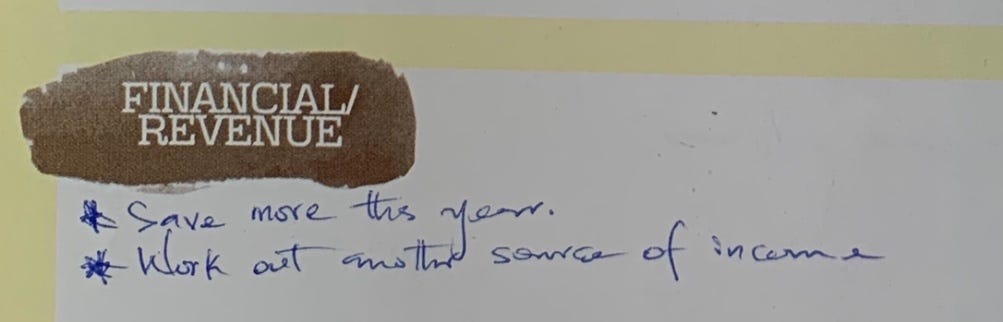 FINANCIAL/
REVENUE
* Save more this year.
* Work out another source of income